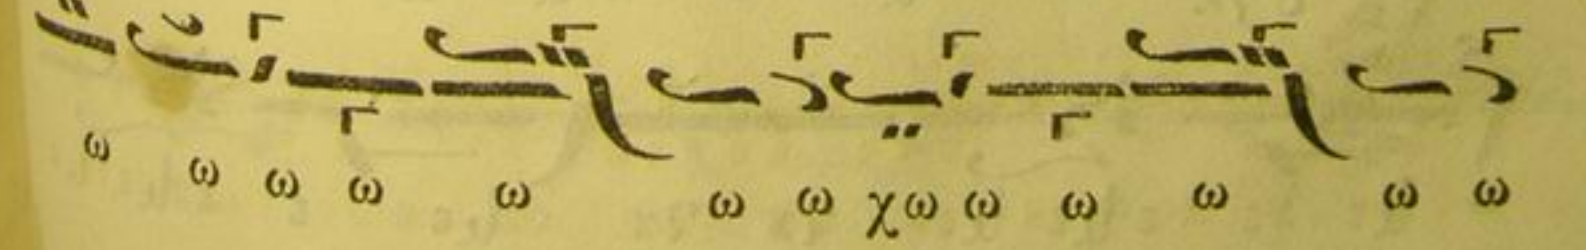 ω ω ω ω ω ω ω χω ω ω ω ω ω